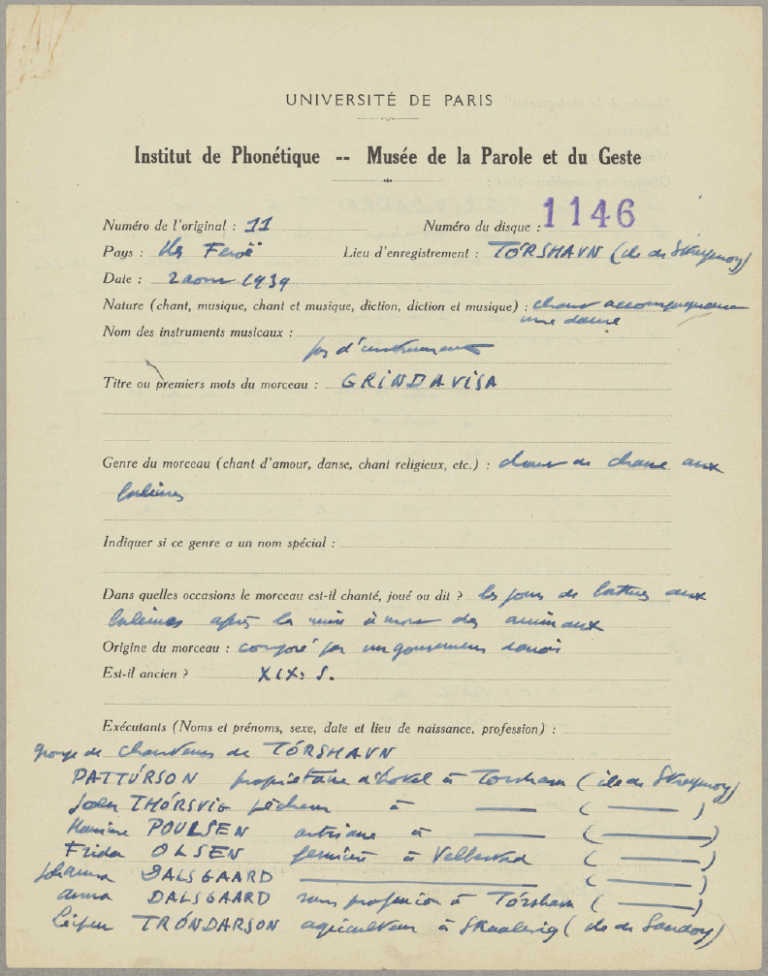 UNIVERSITÉ DE PARIS
Institut de Phonétique -- Musée de la Parole et du Geste
Numéro de l'original : 11 Numéro du disque : 1146
Pays : Iles Feroë Lieu d'enregistrement : TÓRSHAVN (ile de Streymoy)
Date : 2 aout 1939
Nature (chant, musique, chant et musique, diction, diction et musique) : chant accompagnant
une danse
Nom des instruments musicaux :
pas d'instruments
Titre ou premiers mots du morceau : GRINDAVISA
Genre du morceau (chant d'amour, danse, chant religieux, etc.) : chant de chasse aux
baleines
Indiquer si ce genre a un nom spécial :
Dans quelles occasions le morceau est-il chanté, joué ou dit ? les jours de battues aux
baleines après la mise à mort des animaux
Origine du morceau : composé par un gouverneur danois
Est-il ancien ? XIXe S.
Exécutants (Noms et prénoms, sexe, date et lieu de naissance, profession) :
groupe de chanteurs de TÓRSHAVN
PATTURSON propriétaire d'hotel à Torshavn (ile de Streymoy)
THÓRSVIG pêcheur à — ( — )
POULSEN à — ( — )
Frida OLSEN à ( — )
Johanna DALSGAARD — ( — )
Anna DALSGAARD sans profession à Tórshavn ( — )
TRÓNDARSON agriculteur à (ile de Sandoy)